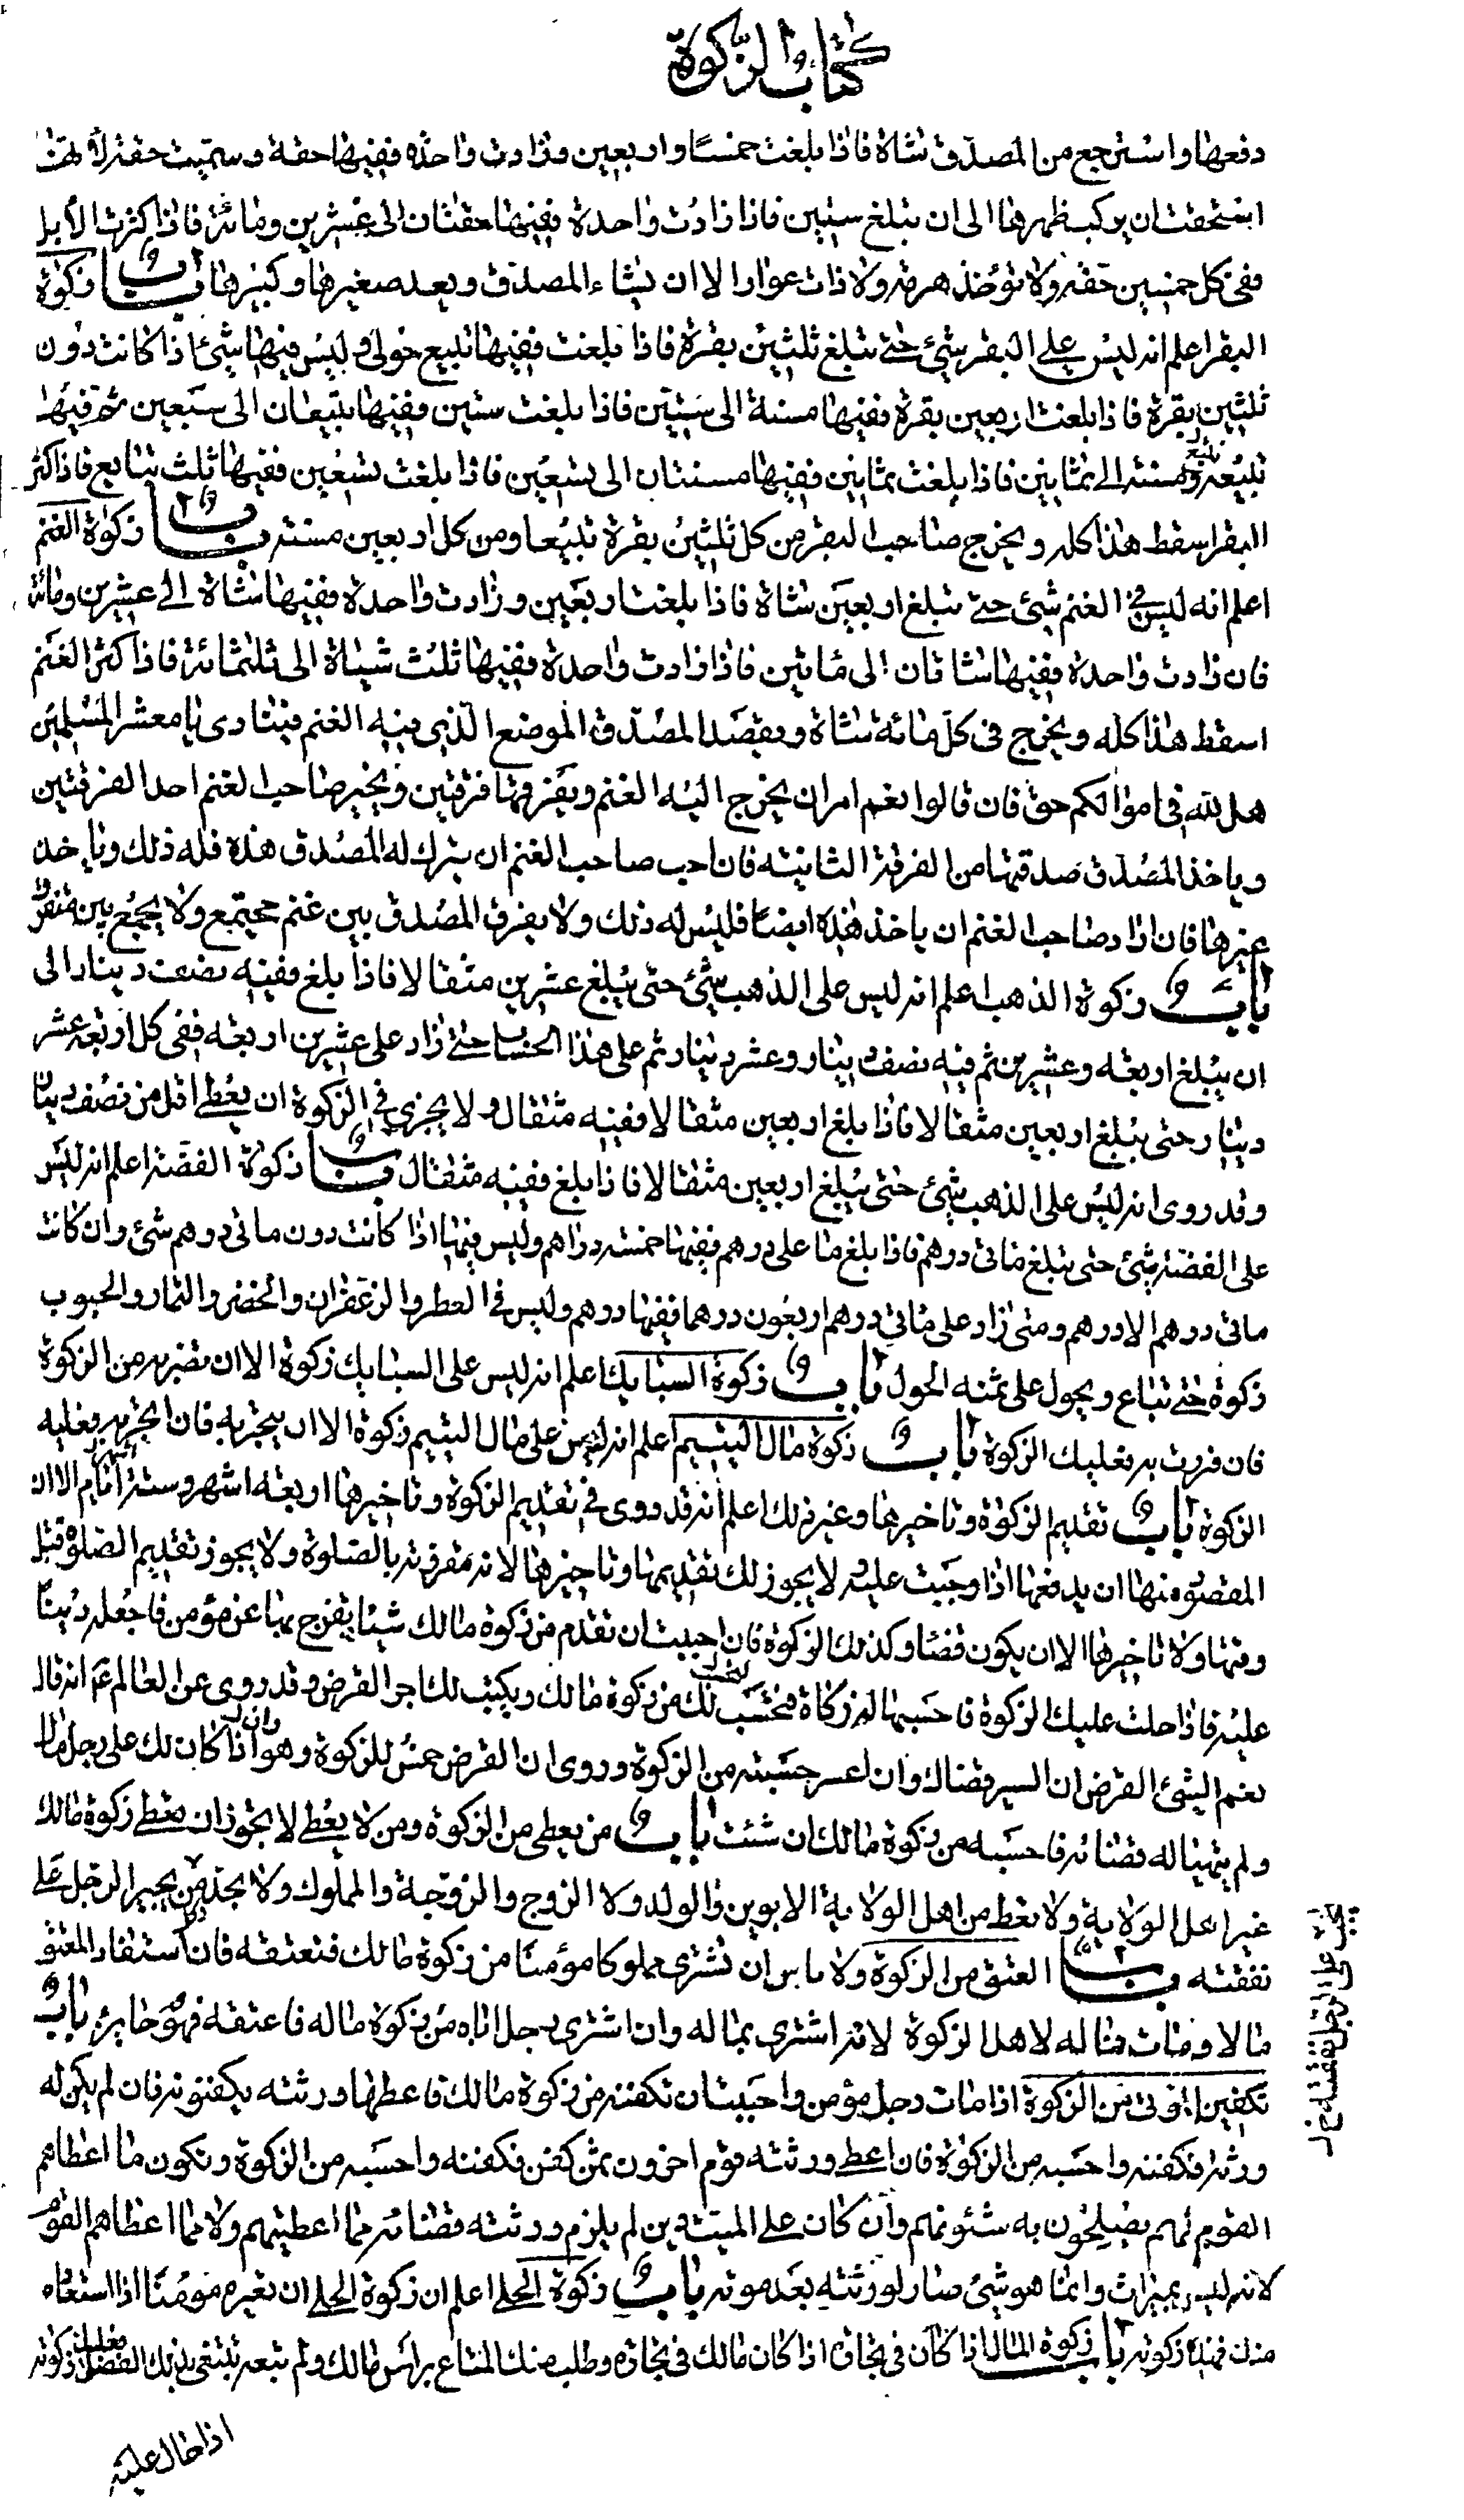 كتاب الزكوة
دفعها واسترجع من المصدق شاة فاذا بلغت خمسا واربعين وزادت واحدة ففيها حقة وسميت حقة لانها
استحقت ان يركب ظهرها الى ان تبلغ ستين فاذا زادت واحدة ففيها حقتان الى عشرين ومائة فاذا كثرت الابل
ففى كل خمسين حقة ولا تؤخذ هرمة ولا ذات عوار الا ان يشاء المصدق ويعد صغيرها وكبيرها باب زكوة
البقر اعلم انه ليس على البقر شئ حتى تبلغ ثلثين بقرة فاذا بلغت ففيها تبيع حولى وليس فيها شئ اذا كانت دون
ثلثين بقرة فاذا بلغت اربعين بقرة ففيها مسنة الى ستين فاذا بلغت ستين ففيها تبيعان الى سبعين ثم فيها
تبيعة ومسنة الى ثمانين فاذا بلغت ثمانين ففيها مسنتان الى تسعين فاذا بلغت تسعين ففيها ثلث تبايع فاذا كثر
البقر اسقط هذا كله ويخرج صاحب البقر من كل ثلثين بقرة تبيعا ومن كل اربعين مسنة باب زكوة الغنم
اعلم انه ليس فى الغنم شئ حتى تبلغ اربعين شاة فاذا بلغت اربعين وزادت واحدة ففيها شاة الى عشرين ومائة
فان زادت واحدة ففيها شاتان الى مائتين فاذا زادت واحدة ففيها ثلث شياة الى ثلثمائة فاذا كثر الغنم
اسقط هذا كله ويخرج فى كل مائة شاة ويقصد المصدق الموضع الذى فيه الغنم فينادى يا معشر المسلمين
هل لله فى اموالكم حق فان قالوا نعم امر ان يخرج اليه الغنم ويفرقها فرقتين ويخير صاحب الغنم احدا الفرقتين
وياخذ المصدق صدقتها من الفرقة الثانية فان احب صاحب الغنم ان يترك له المصدق هذه فله ذلك وياخذ
غيرها فان اراد صاحب الغنم ان ياخذ هذه ايضا فليس له ذلك ولا يفرق المصدق بين غنم مجتمع ولا يجمع بين متفرق
باب زكوة الذهب اعلم انه ليس على الذهب شئ حتى يبلغ عشرين مثقالا فاذا بلغ ففيه نصف دينار الى
ان يبلغ اربعة وعشرين ثم فيه نصف دينار وعشر دينار ثم على هذا الحساب متى زاد على عشرين اربعة ففى كل اربعة عشر
دينار حتى يبلغ اربعين مثقالا فاذا بلغ اربعين مثقالا ففيه مثقال ولا يجزى فى الزكوة ان يعطى اقل من نصف دينار
وقد روى انه ليس على الذهب شئ حتى يبلغ اربعين مثقالا فاذا بلغ ففيه مثقال باب زكوة الفضة اعلم انه ليس
على الفضة شئ حتى تبلغ مائتى درهم فاذا بلغ مائتى درهم ففيها خمسة دراهم وليس فيها اذا كانت دون مائتى درهم شئ وان كانت
مائتى درهم الا درهم ومتى زاد على مائتى درهم اربعون درهما ففيها درهم وليس فى العطر والزعفران والخضر والثمار والحبوب
زكوة حتى تباع ويحول على ثمنه الحول باب زكوة السبايك اعلم انه ليس على السبايك زكوة الا ان تفر به من الزكوة
فان فررت به فعليك الزكوة باب زكوة مال اليتيم اعلم انه ليس على مال اليتيم زكوة الا ان يتجر به فان اتجر به فعليه
الزكوة باب تقديم الزكوة وتاخيرها وغير ذلك اعلم انه قد روى فى تقديم الزكوة وتاخيرها اربعة اشهر وستة اشهر الا ان
المقصود منها ان يدفعها اذا وجبت عليه ولا يجوز لك تقديمها وتاخيرها لانه مقرونة بالصلوة ولا يجوز تقديم الصلوة قبل
وقتها ولا تاخيرها الا ان يكون قضا وكذلك الزكوة فان احببت ان تقدم من زكوة مالك شيئا يفرج بها عن مؤمن فاجعله دينا
عليه فاذا حلت عليك الزكوة فاحسبها له زكاة فتحتسب لك من زكوة مالك ويكتب لك اجر القرض وقد روى عن العالم ع انه قال
نعم الشئ القرض ان ايسر قضاك وان اعسر حسبته من الزكوة وروى ان القرض حمى للزكوة وهو وان اذا كان لك على رجل مال
ولم يتهيا له قضائه فاحسبه من زكوة مالك ان شئت باب من يعطى من الزكوة ومن لا يعطى لا يجوز ان يعطى زكوة مالك
غير اهل الولاية ولا تعط من اهل الولاية الابوين والولد ولا الزوج والزوجة والمملوك ولا الجد من يجبر الرجل على
نفقته باب العتق من الزكوة ولا باس ان تشترى مملوكا مؤمنا من زكوة مالك فتعتقه فان استفاد المعتق
مالا ومات فماله لاهل الزكوة لانه اشترى بماله وان اشترى رجل اباه من زكوة ماله فاعتقه فهو جايز باب
تكفين الموتى من الزكوة اذا مات رجل مؤمن واحببت ان تكفنه من زكوة مالك فاعطها ورثته يكفنونه فان لم يكن له
ورثة فكفنه واحسبه من الزكوة فان اعطى ورثته قوم اخرون ثمن كفن فكفنه واحسبه من الزكوة وتكون ما اعطاهم
القوم لهم يصلحون به شئونهم وان كان على الميت دين لم يلزم ورثته قضائه مما اعطيتهم ولا مما اعطاهم القوم
لانه ليس بميراث وانما هو شئ صار لورثته بعد موته باب زكوة الحلى اعلم ان زكوة الحلى ان تعيره مؤمنا اذا استعاره
منك فهذه زكوته باب زكوة المال اذا كان فى تجارة اذا كان مالك فى تجارة وطلب منك المتاع براس مالك ولم تبعه تبتغى بذلك الفضل فعليك زكوته
اذا حال عليه